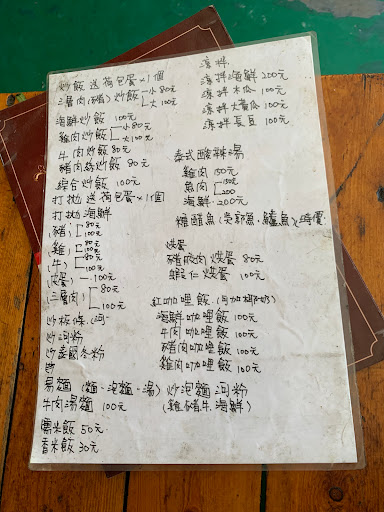 炒飯 送荷包蛋×1個
三層肉(豬)炒飯 小80元
大100元
海鮮炒飯 100元
雞肉炒飯 小80元
大100元
牛肉炒飯 80元
豬肉絲炒飯 80元
綜合炒飯 100元
打拋 送荷包蛋×1個
打拋海鮮
(豬) 80元
100元
(雞) 80元
100元
(牛) 80元
100元
(皮蛋) 100元
(三層肉) 80元
100元
炒板條(河
炒河粉
炒冬粉
易麵(麵、泡麵、湯)
牛肉湯麵 100元
糯米飯 50元
香米飯 30元
涼拌
涼拌海鮮 200元
涼拌木瓜 100元
涼拌大黃瓜 100元
涼拌長豆 100元
泰式酸辣湯
雞肉 150元
魚肉 150元
200元
海鮮 200元
檸檬魚(吳郭魚、鱸魚)時價
烘蛋
豬絞肉烘蛋 80元
蝦仁烘蛋 100元
紅咖哩飯(可加椰奶)
海鮮咖哩飯 100元
牛肉咖哩飯 100元
豬肉咖哩飯 100元
雞肉咖哩飯 100元
炒泡麵 河粉
(雞 豬 牛 海鮮)